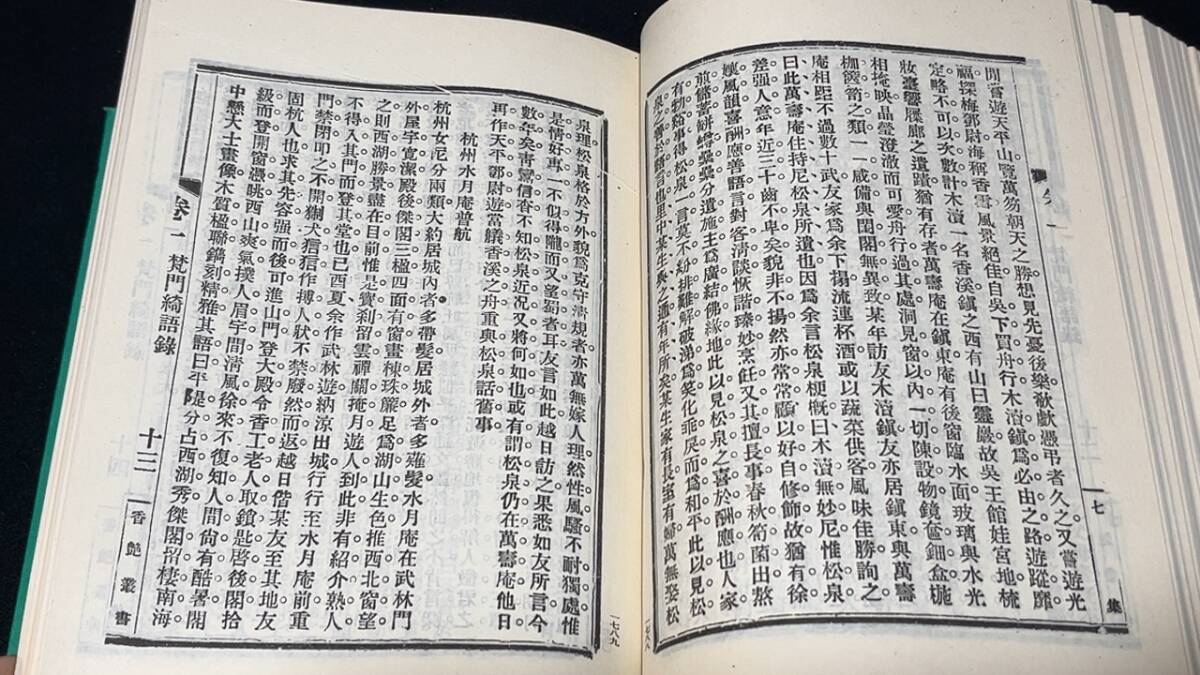 閒嘗遊天平山覽萬笏朝天之勝想見先憂後樂欷歔憑弔者久之又嘗遊光
福探梅鄧尉海稱香雪風景絕佳自吳下買舟行木瀆鎮爲必由之路遊蹤靡
定略不可以次數計木瀆一名香溪鎮之西有山曰靈巖故吳王館娃宮地梳
妝臺響屧廊之遺蹟猶有存者萬壽庵在鎮東庵有後窗臨水面玻璃與水光
相掩映晶瑩澄澈而可愛舟行過其處洞見窗以內一切陳設物鏡奩鈿盒椸
枷篋笥之類一一咸備與閨閣無異致某年訪友木瀆鎮友亦居鎮東與萬壽
庵相距不過數十武友家爲余下榻流連杯酒或以蔬菜供客風味佳勝詢之
曰此萬壽庵住持尼松泉所遺也因爲余言松泉梗概曰木瀆無妙尼惟松泉
差强人意年近三十齒不卑矣貌非不揚然亦常常顧以好自修飾故猶有徐
孃風韻喜酬應善語言對客淸談恢諧臻妙烹飪又其擅長事春秋筍菌出熬
煎儲蓄缾罇罍罍分遺施主爲廣結佛緣地此以見松泉之喜於酬應也人家
有物紛事得松泉一言莫不紛排難解破涕爲笑化乖戾而爲和平此以見松
泉之善於語言也里中某生與之通有年所矣某生家有長室有婦萬無娶松
七
集
一七八八
泉理松泉格於方外貌爲克守清規者亦萬無嫁人理然性風騷不耐獨處惟
是情好專一不似得隴而又望蜀者耳友言如此越日訪之果悉如友所言今
數年矣靑鸞信杳不知松泉近况又將何如也或有謂松泉仍在萬壽庵他日
再作天平鄧尉遊當艤香溪之舟重與松泉話舊事
杭州水月庵普航
杭州女尼分兩類大約居城內者多帶髮居城外者多薙髮水月庵在武林門
外屋宇寬潔殿後傑閣三楹四面有窗畫棟珠簾足爲湖山生色推西北窗望
之則西湖勝景盡在目前惟是寶刹留雲禪關掩月遊人到此非有紹介熟人
不得入其門而登其堂也已酉夏余作武林遊納涼出城行行至水月庵前重
門禁閉叩之不開猘犬狺狺作搏人狀不禁廢然而返越日偕某友至其地友
固杭人也求其先容强而後可進山門登大殿令香工老人取鎖匙啓後閣拾
級而登開窗憑眺西山爽氣撲人眉宇間淸風徐來不復知人間尙有酷暑閣
中懸大士畫像木質楹聯鐫刻精雅其語曰平堤分占西湖秀傑閣留棲南海
卷一
梵門綺語錄
十三
香豔叢書
一七八九